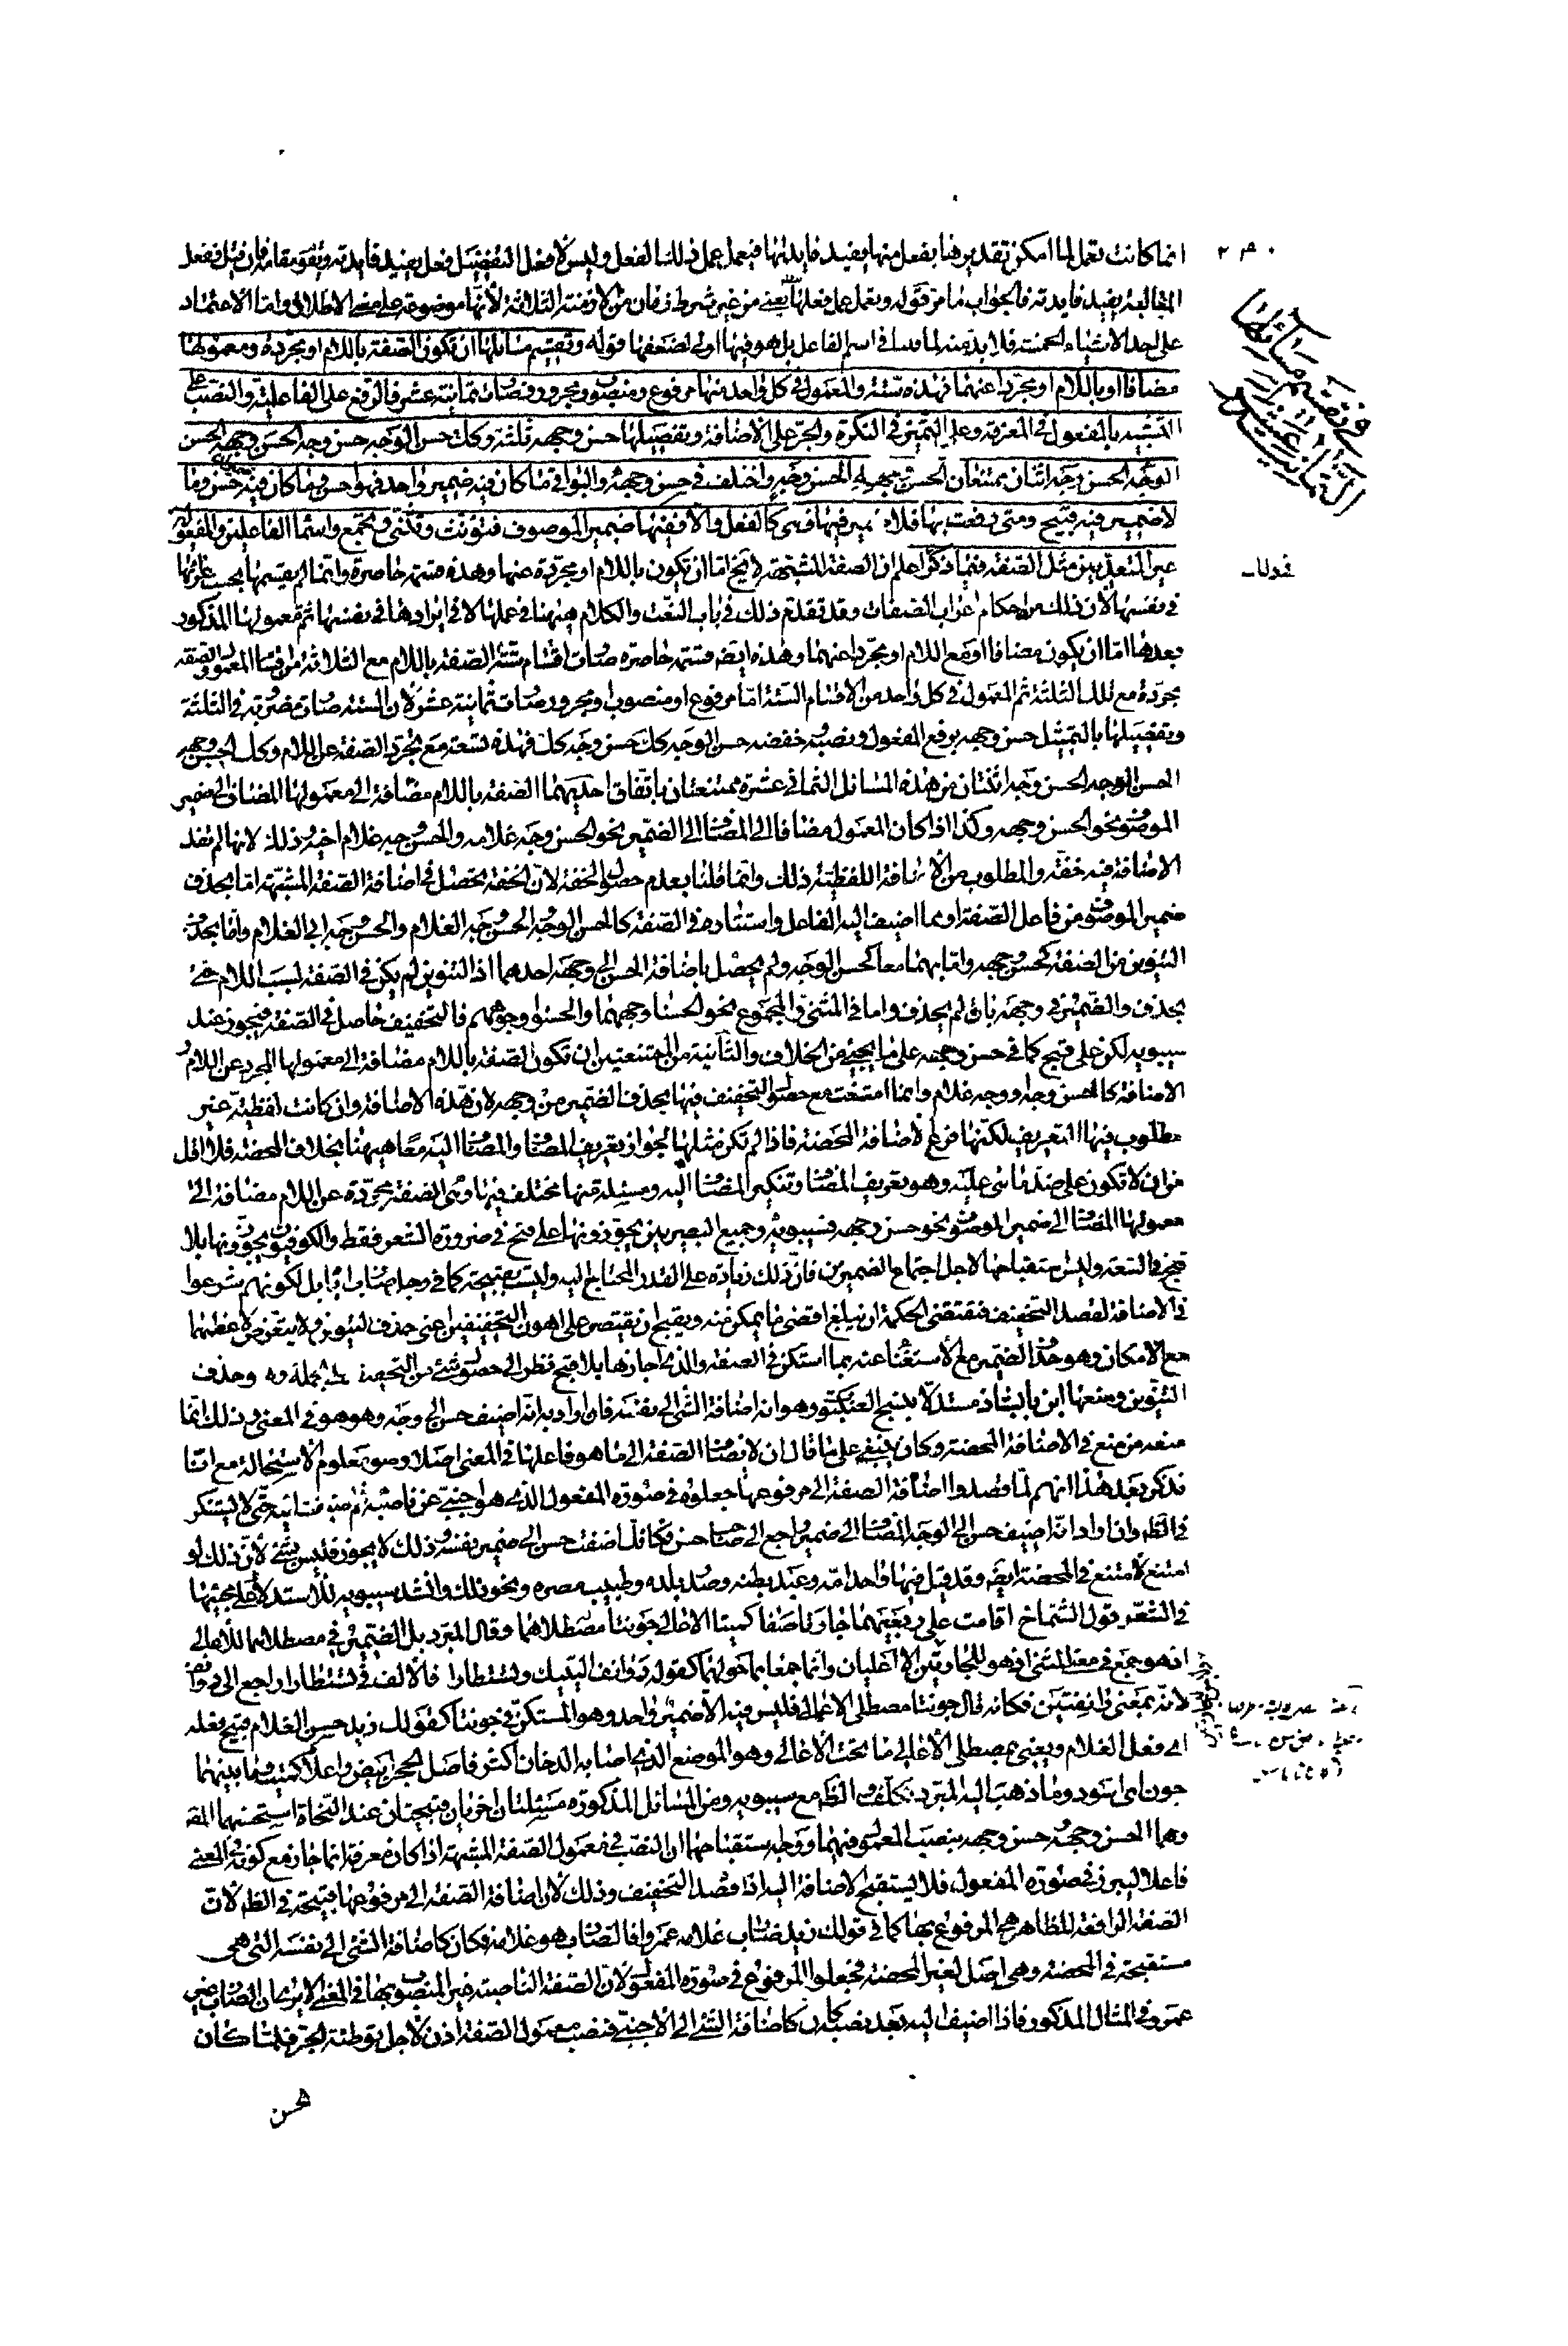 انما كانت تعمل لما امكن تقديرها بفعل منها يفيد فايدتها فيعمل عمل ذلك الفعل وليس لافعل التفضيل فعل يفيد فايدته ويقوم مقامه فان قيل ففعل
المغالبة يفيد فايدته فالجواب ما مر قوله وتعمل عمل فعلها يعنى من غير شرط زمان من الازمنة الثلاثة لانها موضوعة على معنى الاطلاق واما الاعتماد
على احد الاشياء الخمسة فلا بد منه لما مر فى اسم الفاعل بل هو فيها اولى لضعفها قوله وتقسيم مسائلها ان تكون الصفة باللام او مجردة ومعمولها
مضافا او باللام او مجردا عنهما فهذه ستة والمعمول فى كل واحد منها مرفوع ومنصوب ومجرور وصارت ثمانية عشر فالرفع على الفاعلية والنصب على
التشبيه بالمفعول فى المعرفة وعلى التمييز فى النكرة والجر على الاضافة وتفصيلها حسن وجهه ثلثة وكذلك حسن الوجه حسن وجه الحسن وجهه الحسن
الوجه الحسن وجه اثنان ممتنعان الحسن وجهه الحسن وجه واختلف فى حسن وجهه والبواقى ما كان فيه ضمير واحد فهو احسن وما كان فيه ضميران حسن وما
لا ضمير فيه قبيح ومتى رفعت بها فلا ضمير فيها فهى كالفعل والا ففيها ضمير الموصوف فتؤنث وتثنى وتجمع واسما الفاعلين والمفعولين
غير المتعديين مثل الصفة فيما ذكر اعلم ان الصفة المشبهة لا يخ اما ان تكون باللام او مجردة عنها وهذه قسمة حاصرة وانما لم يقسمها بحسب اعرابها
فى نفسها لان ذلك من احكام اعراب الصفات وقد تقدم ذلك فى باب النعت والكلام ههنا فى عملها لا فى ايرادها فى نفسها ثم معمولها المذكور
بعدها اما ان يكون مضافا او مع اللام او مجردا عنهما وهذه ايضا قسمة حاصرة صارت اقسام ستة الصفة باللام مع الثلاثة من اقسام المعمول والصفة
مجردة مع تلك الثلثة ثم المعمول فى كل واحد من الاقسام الستة اما مرفوع او منصوب او مجرور صارت ثمانية عشر لان الستة صارت مضروبة فى الثلثة
وتفصيلها بالتمثيل حسن وجهه برفع المفعول ونصبه وخفضه حسن الوجه كذلك حسن وجه كذلك فهذه تسعة مع تجرد الصفة عن اللام وكذلك الحسن وجهه
الحسن الوجه الحسن وجه اثنتان من هذه المسائل الثمانى عشرة ممتنعتان باتفاق احديهما الصفة باللام مضافة الى معمولها المضاف الى ضمير
الموصوف نحو الحسن وجهه وكذا اذا كان المعمول مضافا الى المضاف الى الضمير نحو الحسن وجه غلامه والحسن وجه غلام اخيه وذلك لانها لم تفد
الاضافة فيه خفة والمطلوب من الاضافة اللفظية ذلك وانما قلنا بعدم حصول الخفة لان الخفة تحصل فى اضافة الصفة المشبهة اما بحذف
ضمير الموصوف من فاعل الصفة او مما اضيف اليه الفاعل واستتاره فى الصفة كالحسن الوجه الحسن وجه الغلام والحسن وجه ابى الغلام واما بحذف
التنوين من الصفة كحسن وجهه واما بهما معا كحسن الوجه ولم يحصل باضافة الحسن الى وجهه احدهما اذ التنوين لم يكن فى الصفة لسبب اللام حتى
يحذف والضمير فى وجهه باق لم يحذف واما فى المثنى والمجموع نحو الحسنا وجههما والحسنوا وجوههم فالتخفيف حاصل فى الصفة فيجوز عند
سيبويه لكن على قبح كما فى حسن وجهه على ما يجئ من الخلاف والثانية من الممتنعتين ان تكون الصفة باللام مضافة الى معمولها المجرد عن اللام و
الاضافة كالحسن وجه او وجه غلام وانما امتنعت مع حصول التخفيف فيها بحذف الضمير من وجهه لان هذه الاضافة وان كانت لفظية غير
مطلوب فيها التعريف لكنها فرع الاضافة المحضة فاذا لم تكن مثلها لجواز تعريف المضاف والمضاف اليه معا ههنا بخلاف المحضة فلا اقل
من ان لا تكون على ضد ما هى عليه وهو تعريف المضاف وتنكير المضاف اليه ومسئلة منها مختلف فيها وهى الصفة مجردة عن اللام مضافة الى
معمولها المضاف الى ضمير الموصوف نحو حسن وجهه فسيبويه وجميع البصريين يجوزونها على قبح فى ضرورة الشعر فقط والكوفيون يجوزونها بلا
قبح فى السعة وليس استقباحها لاجل اجتماع الضميرين فان ذلك زيادة على القدر المحتاج اليه وليست بقبيحة كما فى رجل ضارب اباه بل لكونهم شرعوا
فى الاضافة لقصد التخفيف فتقتضى الحكمة ان يبلغ اقصى ما يمكن منه ويقبح ان يقتصر على اهون التخفيفين اعنى حذف التنوين ولا يتعرض لاعظمهما
مع الامكان وهو حذف الضمير مع الاستغنا عنه بما استكن فى الصفة والذى اجازها بلا قبح نظر الى حصول شئ من التخفيف على الجملة وهو حذف
التنوين ومنعها ابن بابشاذ مستدلا بنسج العنكبوت وهو انه اضافة الشئ الى نفسه فان اراد به انه اضيف حسن الى وجه وهو هو فى المعنى فذلك انما
منعه من منع فى الاضافة المحضة وكان ينبغى على ما قال ان لا تضاف الصفة الى ما هو فاعلها فى المعنى اصلا وهو معلوم الاستحالة مع اننا
نذكر بعد هذا انهم لما قصدوا اضافة الصفة الى مرفوعها جعلوه فى صورة المفعول الذى هو اجنبى عن ناصبه ثم اضيفت اليه حتى لا يستنكر
فى الظ وان اراد انه اضيف حسن الى الوجه المضاف الى ضمير راجع الى صاحب حسن فكانك اضفت حسن الى ضمير نفسه وذلك لا يجوز فليس بشئ لان ذلك لو
امتنع لامتنع فى المحضة ايضا وقد قيل فيها واحد امه وعبد بطنه وصدر بلده وطبيب مصره ونحو ذلك وانشد سيبويه للاستدلال على مجيئها
فى الشعر قول الشماخ اقامت على ربعيهما جارتا صفا كميتا الاعالى جونتا مصطلاهما وقال المبرد بل الضمير فى مصطلاهما للاعالى
اذ هو جمع فى معنى المثنى اذ هو للجارتين الا اعليان وانما جمعا بما حولهما كقوله روانف اليتيك وتستطارا فالالف فى تستطارا راجع الى روانف
لانه بمعنى رانفتين فكانه قال جونتا مصطلى الاعالى فليس فيه الا ضمير واحد وهو المستكن فى جونتا كقولك زيد حسن الغلام قبيح فعله
اى فعل الغلام ويعنى بمصطلى الاعالى ما تحت الاعالى وهو الموضع الذى اصابه الدخان اكثر فاصل الحجر ابيض واعلاه كميت وما بينهما
جون اى اسود وما ذهب اليه المبرد تكلف والظ مع سيبويه ومن المسائل المذكورة مسئلتان اخريان قبيحتان عند النحاة استحسنهما المص
وهما الحسن وجهه حسن وجهه بنصب المعمول فيهما ووجه استقباحهما ان النصب فى معمول الصفة المشبهة اذا كان معرفة انما جاز مع كونه فى المعنى
فاعلا ليبرز فى صورة المفعول فلا يستقبح الاضافة اليه اذا قصد التخفيف وذلك لان اضافة الصفة الى مرفوعها قبيحة فى الظ لان
الصفة الرافعة للظاهر هى المرفوع بها كما فى قولك زيد ضارب غلامه عمرا فالضارب هو غلامه فكان كاضافة الشئ الى نفسه التى هى
مستقبحة فى المحضة وهى اصل لغير المحضة فجعلوا المرفوع فى صورة المفعول لان الصفة الناصبة غير المنصوب بها فى المعنى الا ترى ان الضارب غير
عمرو فى المثال المذكور فاذا اضيف اليه بعد نصبه كان كاضافة الشئ الى الاجنبى فنصب معمول الصفة اذن لاجل توطئة الجر فلما كان